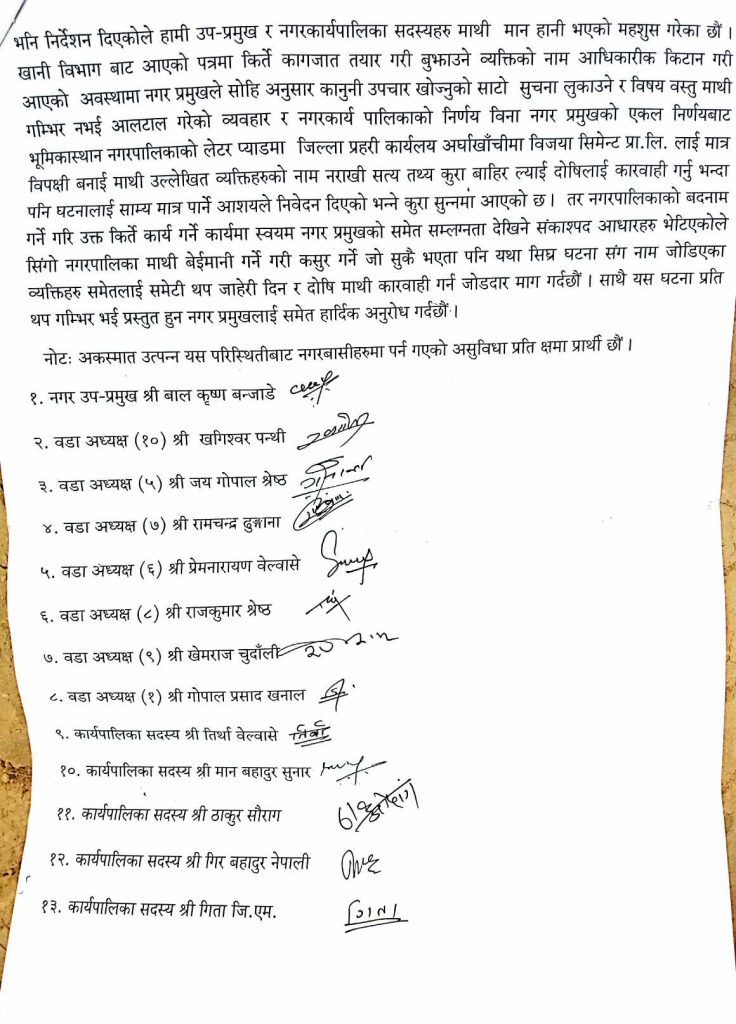 भनि निर्देशन दिएकोले हामी उप-प्रमुख र नगरकार्यपालिका सदस्यहरु माथी मान हानी भएको महशुस गरेका छौं ।
खानी विभाग बाट आएको पत्रमा किर्ते कागजात तयार गरी बुझाउने व्यक्तिको नाम आधिकारीक किटान गरी
आएको अवस्थामा नगर प्रमुखले सोहि अनुसार कानुनी उपचार खोज्नुको साटो सुचना लुकाउने र विषय वस्तु माथी
गम्भिर नभई आलटाल गरेको व्यवहार र नगरकार्य पालिकाको निर्णय विना नगर प्रमुखको एकल निर्णयबाट
भूमिकास्थान नगरपालिकाको लेटर प्याडमा जिल्ला प्रहरी कार्यलय अर्घाखाँचीमा विजया सिमेन्ट प्रा.लि. लाई मात्र
विपक्षी बनाई माथी उल्लेखित व्यक्तिहरुको नाम नराखी सत्य तथ्य कुरा बाहिर ल्याई दोषिलाई कारवाही गर्नु भन्दा
पनि घटनालाई साम्य मात्र पार्ने आशयले निवेदन दिएको भन्ने कुरा सुन्नमा आएको छ । तर नगरपालिकाको बदनाम
गर्ने गरि उक्त किर्ते कार्य गर्ने कार्यमा स्वयम नगर प्रमुखको समेत सम्लग्नता देखिने संकाश्पद आधारहरु भेटिएकोले
सिंगो नगरपालिका माथी बेईमानी गर्ने गरी कसुर गर्ने जो सुकै भएता पनि यथा सिघ्र घटना संग नाम जोडिएका
व्यक्तिहरु समेतलाई समेटी थप जाहेरी दिन र दोषि माथी कारवाही गर्न जोडदार माग गर्दछौं । साथै यस घटना प्रति
थप गम्भिर भई प्रस्तुत हुन नगर प्रमुखलाई समेत हार्दिक अनुरोध गर्दछौं ।
नोटः अकस्मात उत्पन्न यस परिस्थितीबाट नगरबासीहरुमा पर्न गएको असुविधा प्रति क्षमा प्रार्थी छौं ।
१. नगर उप-प्रमुख श्री बाल कृष्ण बन्जाडे
२. वडा अध्यक्ष (१०) श्री खगिश्वर पन्थी
३. वडा अध्यक्ष (५) श्री जय गोपाल श्रेष्ठ
४. वडा अध्यक्ष (७) श्री रामचन्द्र ढुङ्गाना
५. वडा अध्यक्ष (६) श्री प्रेमनारायण वेल्वासे
६. वडा अध्यक्ष (८) श्री राजकुमार श्रेष्ठ
७. वडा अध्यक्ष (९) श्री खेमराज चुदाँली
८. वडा अध्यक्ष (१) श्री गोपाल प्रसाद खनाल
९. कार्यपालिका सदस्य श्री तिर्था वेल्वासे तिर्था
१०. कार्यपालिका सदस्य श्री मान बहादुर सुनार
११. कार्यपालिका सदस्य श्री ठाकुर सौराग
१२. कार्यपालिका सदस्य श्री गिर बहादुर नेपाली
१३. कार्यपालिका सदस्य श्री गिता जि.एम. गिता